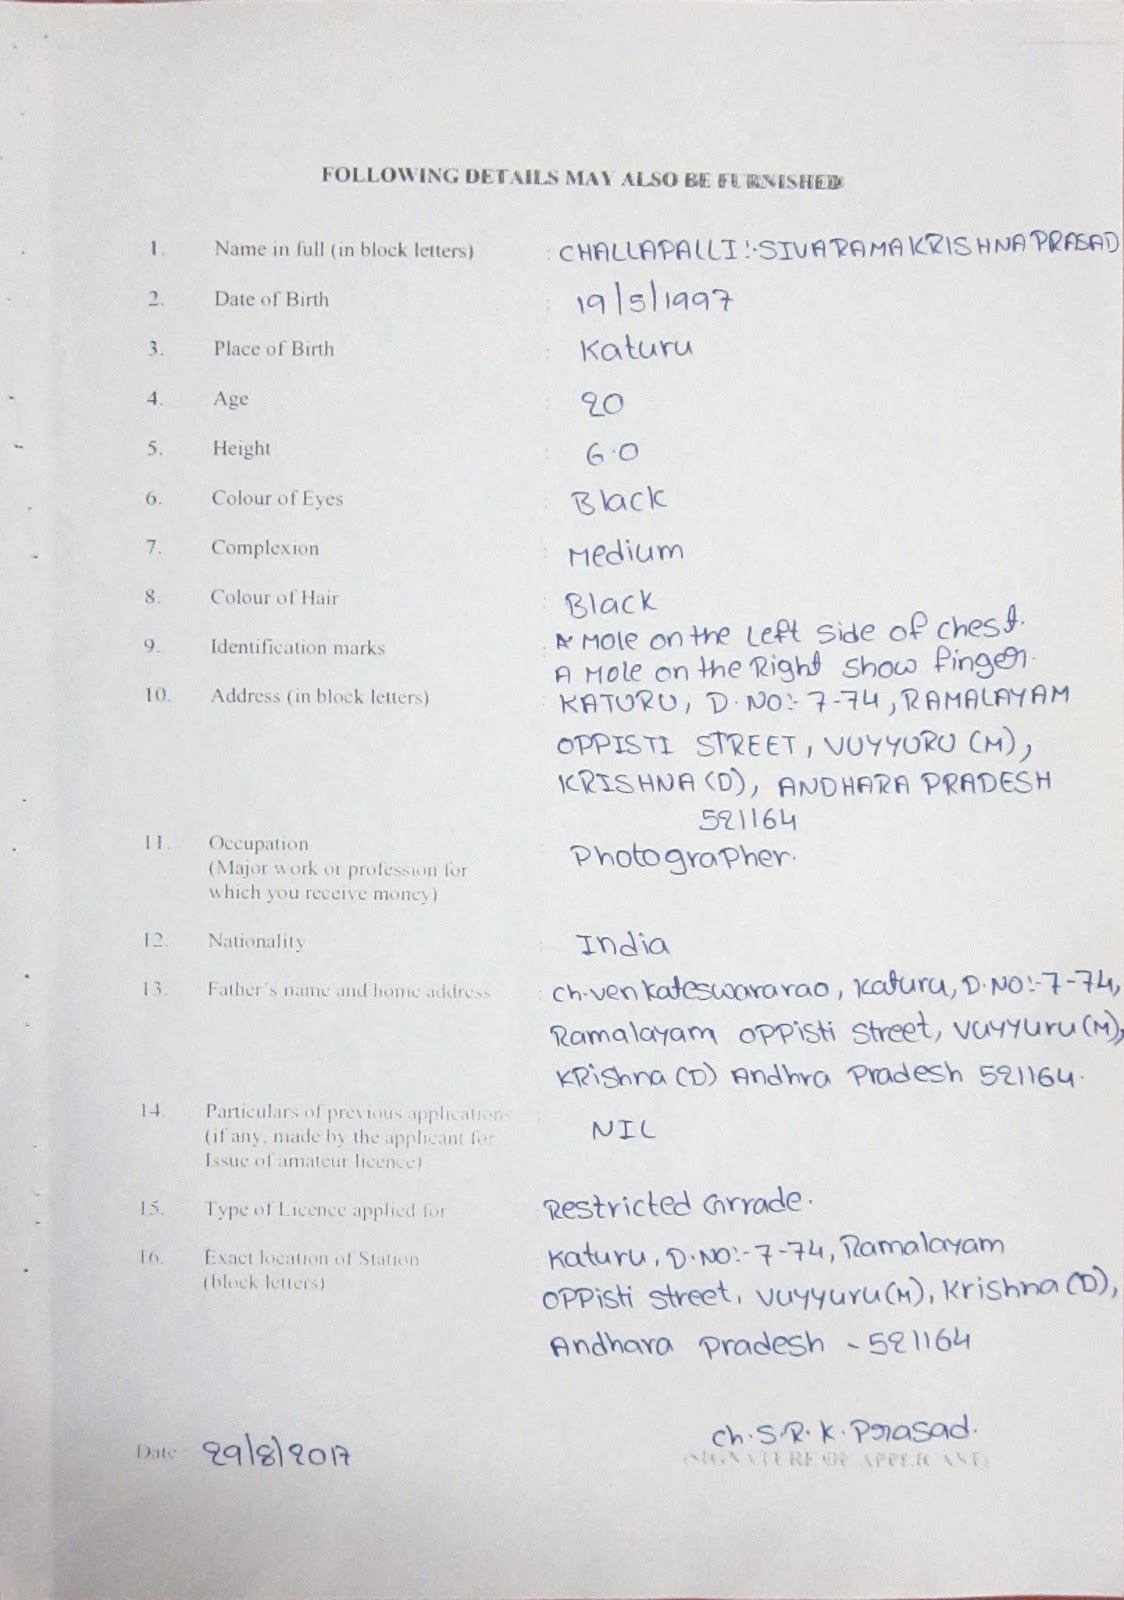 FOLLOWING DETAILS MAY ALSO BE FURNISHED
1. Name in full (in block letters) : CHALLAPALLI:-SIVARAMAKRISHNAPRASAD
2. Date of Birth : 19/5/1997
3. Place of Birth : Katuru
4. Age : 20
5. Height : 6.0
6. Colour of Eyes : Black
7. Complexion : Medium
8. Colour of Hair : Black
9. Identification marks : A Mole on the Left side of chest.
A Mole on the Right show finger.
10. Address (in block letters) KATURU, D.NO:-7-74, RAMALAYAM
OPPISTI STREET, VUYYURU (M),
KRISHNA (D), ANDHARA PRADESH
521164
11. Occupation Photographer.
(Major work or profession for
which you receive money)
12. Nationality : India
13. Father's name and home address : Ch.venkateswararao, Katuru, D.NO:-7-74,
Ramalayam oppisti street, vuyyuru (M),
Krishna (D) Andhra Pradesh 521164.
14. Particulars of previous applications : NIL
(if any, made by the applicant for
Issue of amateur licence)
15. Type of Licence applied for : Restricted Grade.
16. Exact location of Station Katuru, D.NO:-7-74, Ramalayam
(block letters) oppisti street, vuyyuru (M), Krishna (D),
Andhara pradesh - 521164
Ch.S.R.K.Prasad.
Date : 29/8/2017 (SIGNATURE OF APPLICANT)